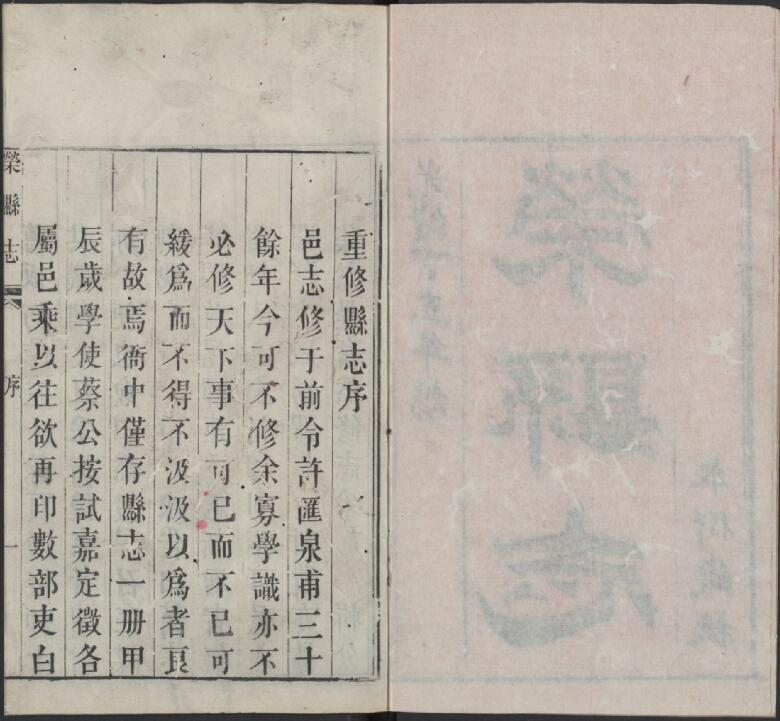 本衙藏板
榮縣志
重修縣志序
邑志修于前令許匯泉甫三十
餘年今可不修余寡學識亦不
必修天下事有可已而不已可
緩爲而不得不汲汲以爲者良
有故焉衙中僅存縣志一册甲
辰歲學使蔡公按試嘉定徵各
屬邑乘以往欲再印數部吏白
榮縣志 序 一